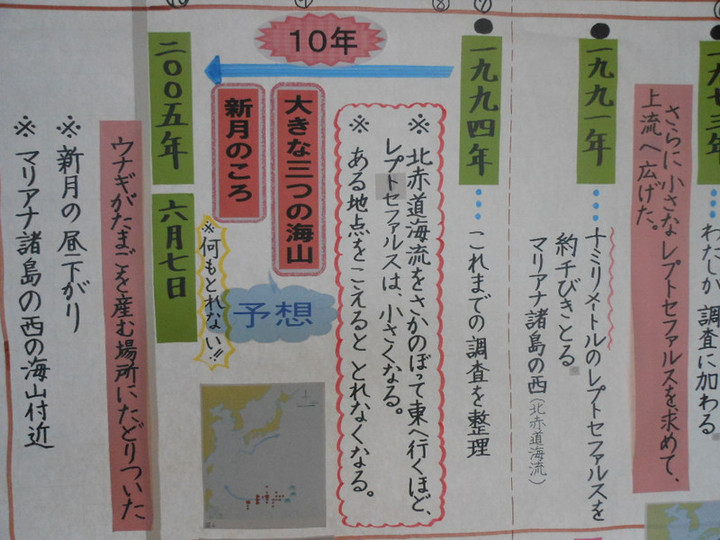 一九七三年
わたしが 調査に加わる
さらに 小さな レプトセファルスを求めて、
上流へ広げた。
一九九一年
十ミリメートルのレプトセファルスを
約千びきとる
マリアナ諸島の西(北赤道海流)
一九九四年
これまでの調査を整理
※ 北赤道海流をさかのぼって東へ行くほど、
レプトセファルスは、小さくなる。
※ ある地点をこえると とれなくなる。
10年
大きな三つの海山
新月のころ
予想
※何もとれない!!
二〇〇五年 六月七日
ウナギがたまごを産む場所にたどりついた
※ 新月の 昼下がり
※ マリアナ諸島の西の海山付近